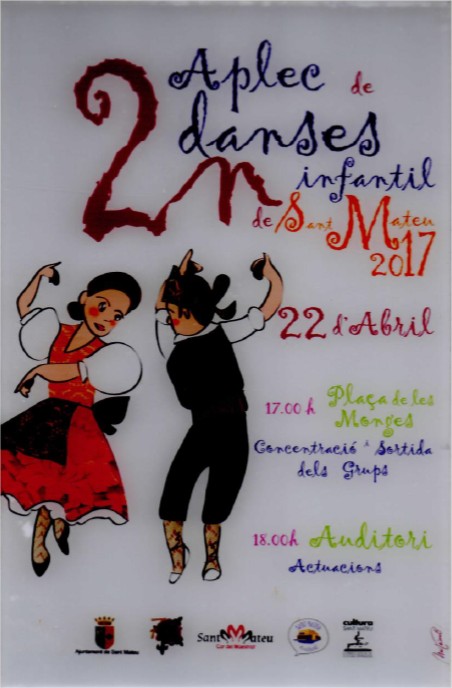 2n
Aplec de
danses
infantil
de Sant Mateu
2017
22 d'Abril
17.00 h Plaça de les
Monges
Concentració & Sortida
dels Grups
18.00h Auditori
Actuacions
Ajuntament de Sant Mateu
Sant Mateu
Cor del Maestrat
cultura
SANT MATEU